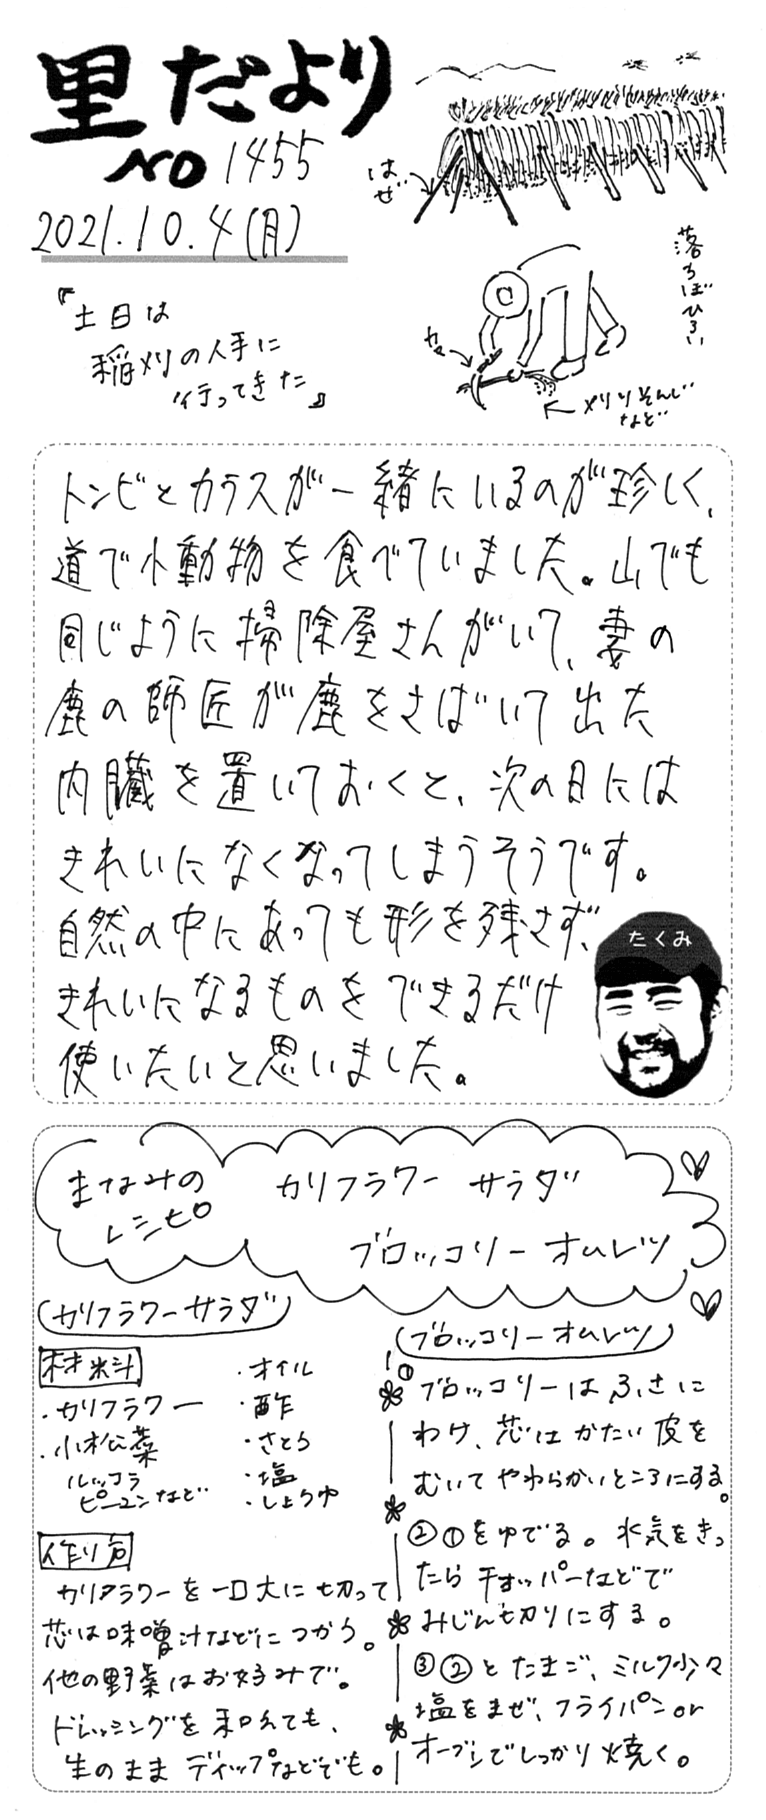 里だより
NO 1455
2021.10.4(月)
はぜ
落ちぼひろい
カマ
刈りそんじ
など
『土日は
稲刈の人手に
行ってきた』
トンビとカラスが一緒にいるのが珍しく、
道で小動物を食べていました。山でも
同じように掃除屋さんがいて、妻の
鹿の師匠が鹿をさばいて出た
内臓を置いておくと、次の日には
きれいになくなってしまうそうです。
自然の中にあっても形を残さず、
きれいになるものをできるだけ
使いたいと思いました。
たくみ
まなみの
レシピ
カリフラワー サラダ
ブロッコリー オムレツ
カリフラワーサラダ
材料
・カリフラワー
・小松菜
ルッコラ
ピーマンなど
・オイル
・酢
・さとう
・塩
・しょうゆ
作り方
カリフラワーを一口大に切って
芯は味噌汁などにつかう。
他の野菜はお好みで。
ドレッシングを和えても、
生のまま ディップなどでも。
ブロッコリーオムレツ
①ブロッコリーは ふさに
わけ、芯は かたい 皮を
むいて やわらかいところにする。
②①をゆでる。水気をきっ
たら チョッパーなどで
みじん切りにする。
③②と たまご、ミルク少々
塩をまぜ、フライパン or
オーブンでしっかり 焼く。